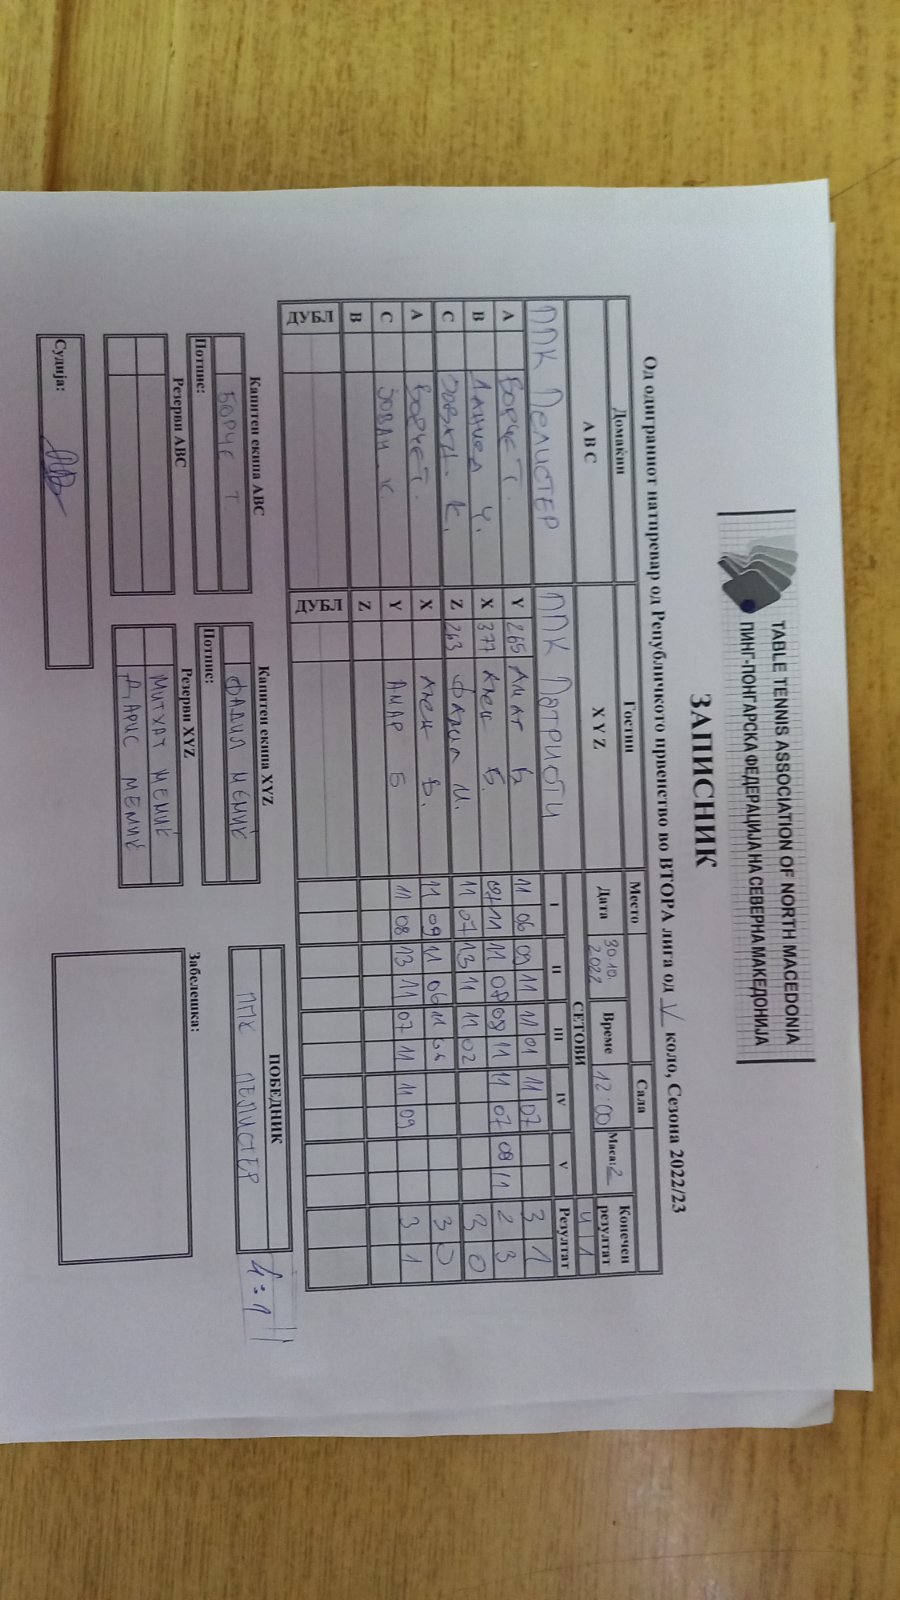 TABLE TENNIS ASSOCIATION OF NORTH MACEDONIA
ПИНГ-ПОНГАРСКА ФЕДЕРАЦИЈА НА СЕВЕРНА МАКЕДОНИЈА
ЗАПИСНИК
Од одиграниот натпревар од Републичкото првенство во ВТОРА лига од V коло, Сезона 2022/23
Домаќин Гостин Место Сала Конечен резултат
A B C X Y Z Дата 30.10. 2022 Време 12:00 Маса: 2 4 1
ППК Пелистер ППК Патриоти СЕТОВИ Резултат
I II III IV V
A Борче Т. Y 265 11 06 09 11 11 01 11 07 3 1
B Ч. X 377 Б. 07 11 11 08 09 11 11 07 09 11 2 3
C К. Z 263 Фадил М. 11 07 13 11 11 02 3 0
A Борче Т. X 11 09 11 06 11 3 0
C Јован К Y Амар Б 11 08 13 11 07 11 11 09 3 1
B Z
ДУБЛ ДУБЛ
Капитен екипа ABC Капитен екипа XYZ ПОБЕДНИК
БОРЧЕ Т ФАДИЛ МЕМИЌ ППК ПЕЛИСТЕР 4:1
Потпис: Потпис:
Резерви ABC Резерви XYZ Забелешка:
МИТХАТ МЕМИЌ
ДАРИС МЕМИЌ
Судија: